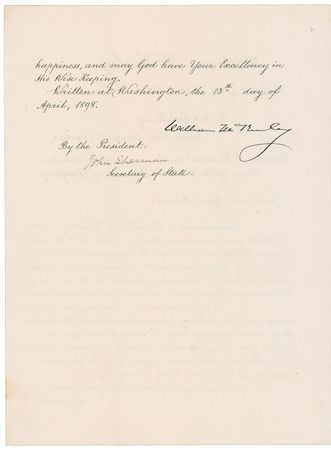 happiness, and may God have Your Excellency in
His Wise Keeping.
Written at Washington, the 13th day of
April, 1898.
William McKinley
By the President:
John Sherman
Secretary of State.